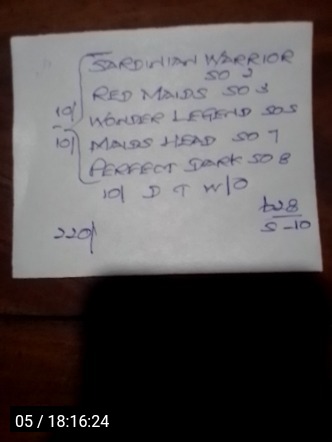 SARDINIAN WARRIOR
SO 2
RED MAIDS SO 3
10/ WONDER LEGEND SO 5
10/ MAIDS HEAD SO 7
PERFECT DARK SO 8
10/ D T W/O
220/
5-10
05 / 18:16:24